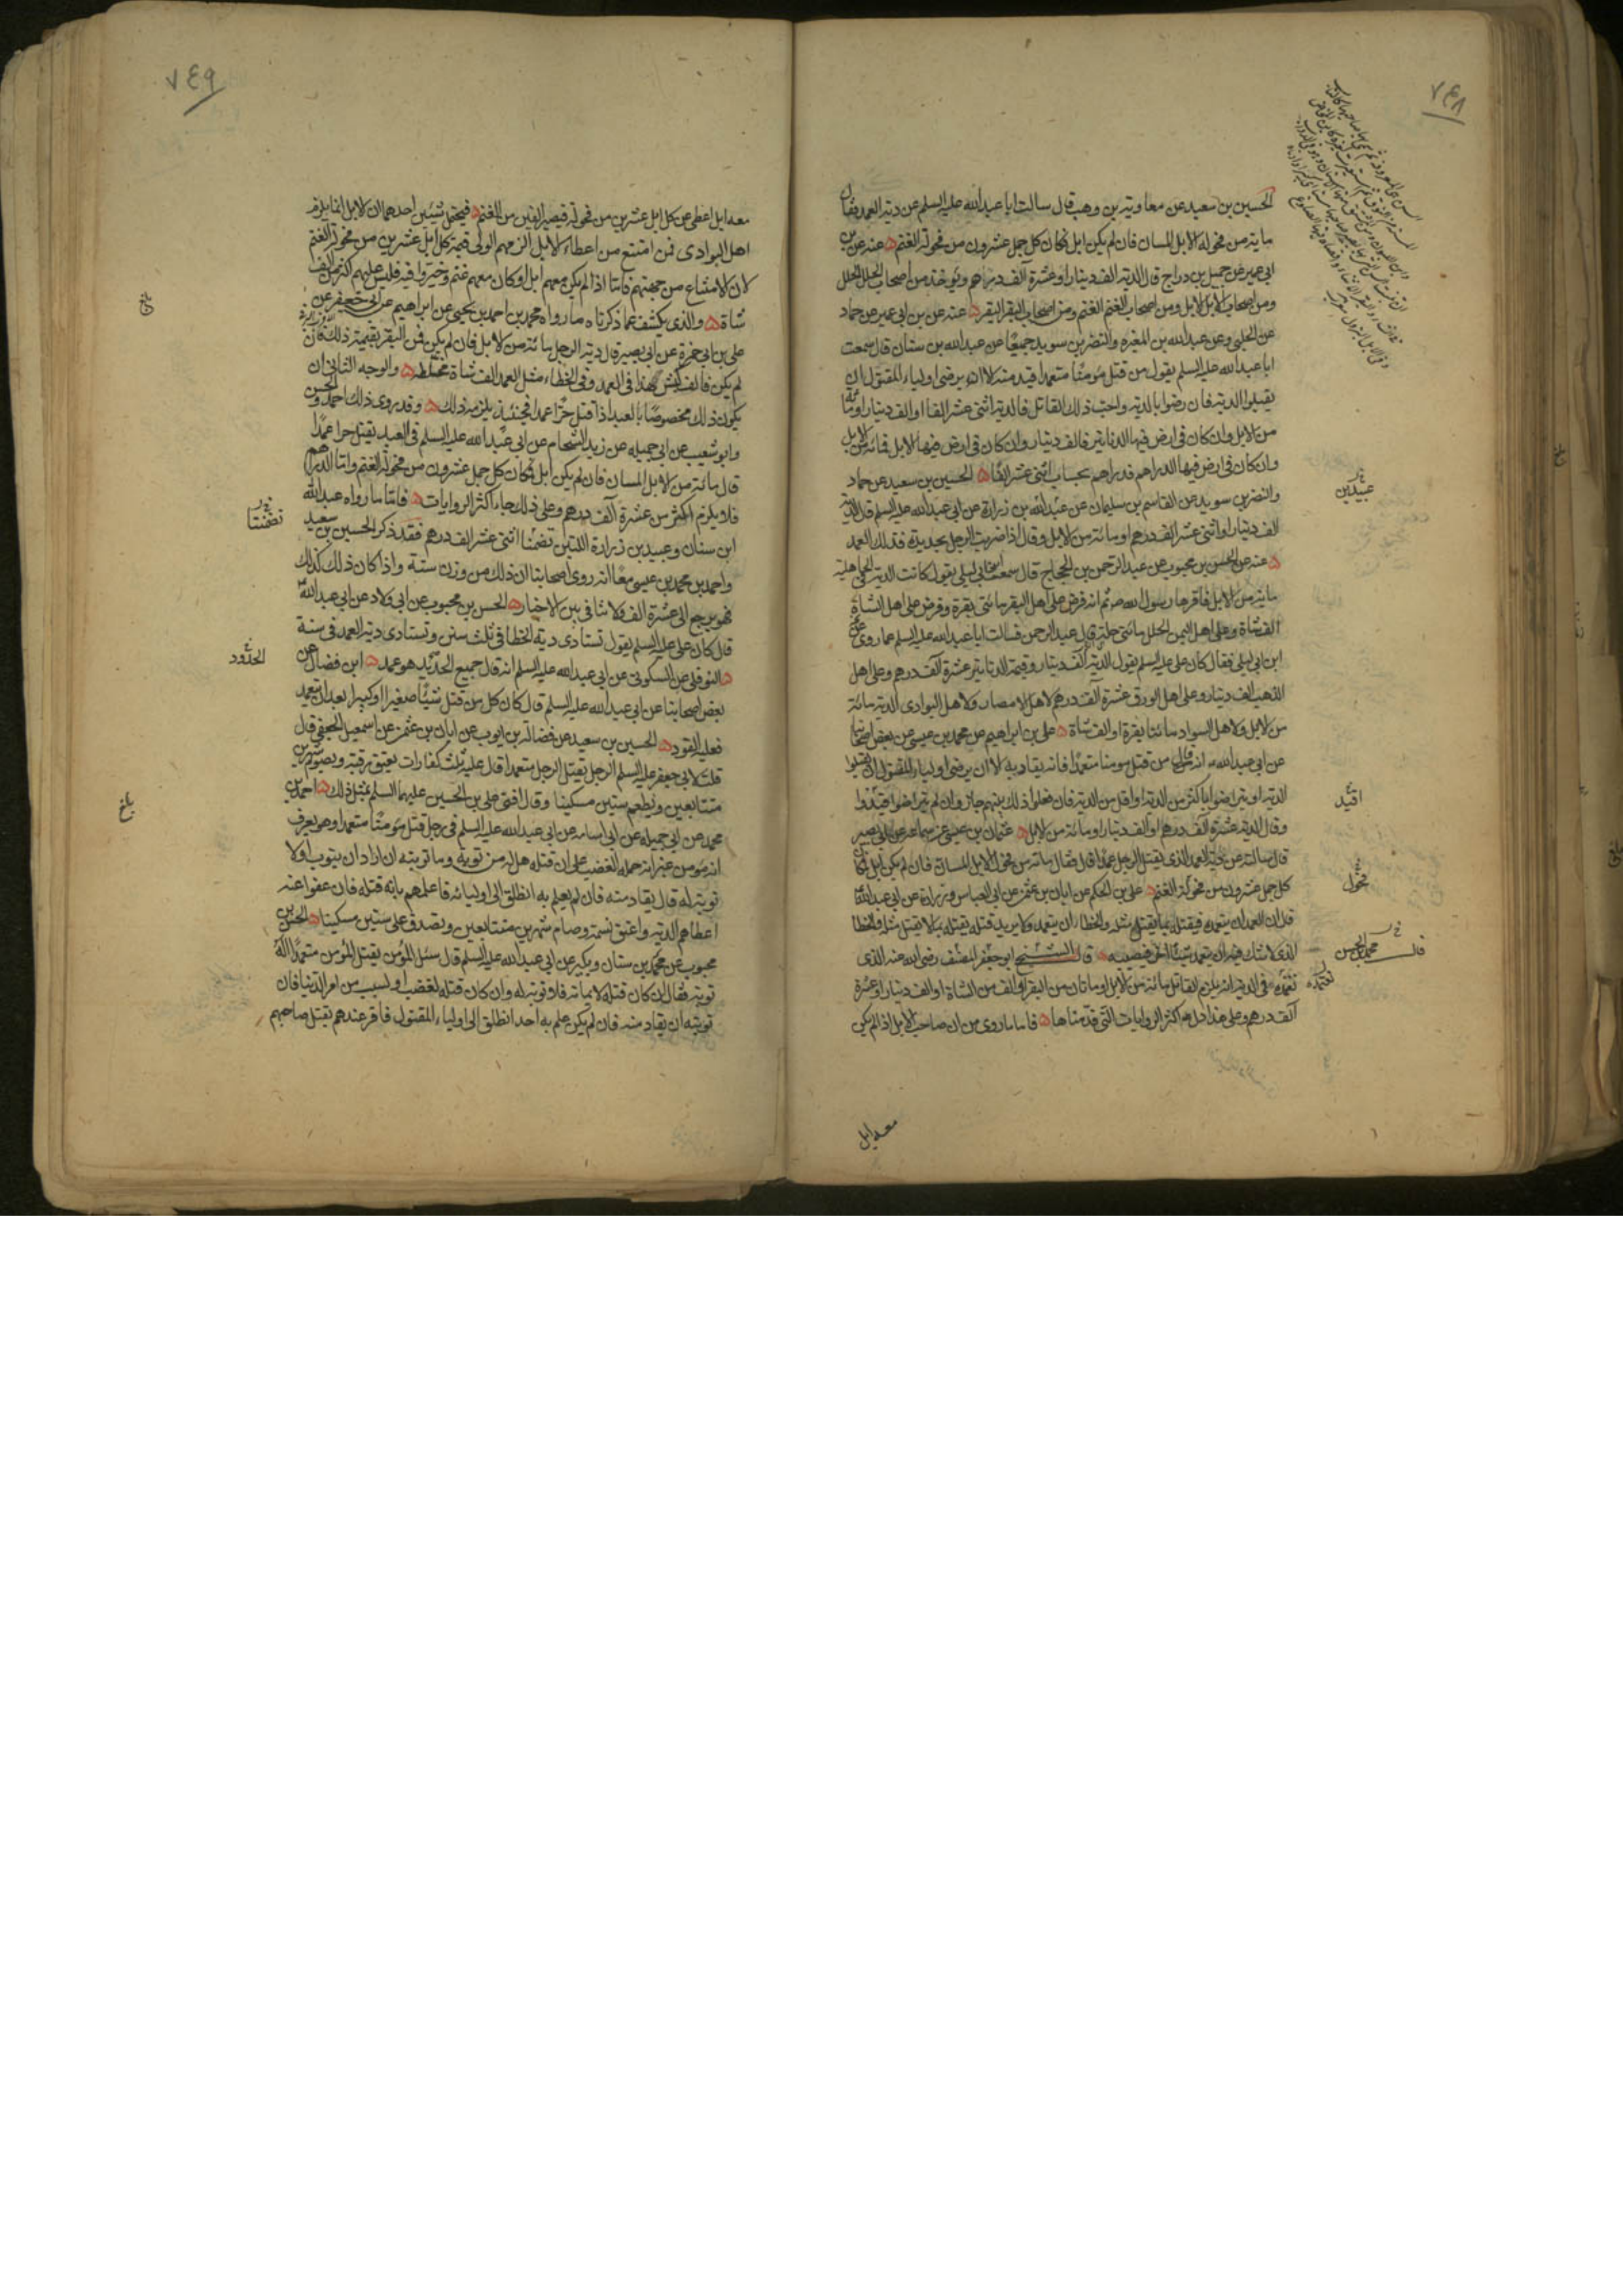 ٧٤٨
الحسين بن سعيد عن معاوية بن وهب قال سالت ابا عبدالله عليه السلم عن دية العمد فقال
ماية من فحولة الابل المسان فان لم يكن ابل فكان كل جمل عشرون من فحولة الغنم ٥ عنه عن بن
ابي عمير عن جميل بن دراج قال الدية الف دينار او عشرة آلف درهم ويوخذ من اصحاب الحلل الحلل
ومن اصحاب الابل الابل ومن اصحاب الغنم الغنم ومن اصحاب البقر البقر ٥ عنه عن بن ابي عمير عن حماد
عن الحلبي وعن عبدالله بن المغيره والنضر بن سويد جميعًا عن عبدالله بن سنان قال سمعت
ابا عبدالله عليه السلم يقول من قتل مؤمنًا متعمدا قيد منه الا ان يرضى اولياء المقتول ان
يقبلوا الدية فان رضوا بالدية واحب ذلك القاتل فالدية اثنى عشر الفا او الف دينار او مائة
من الابل وان كان في ارض فيها الدنانير فالف دينار وان كان في ارض فيها الابل فمائة من الابل
وان كان في ارض فيها الدراهم فدراهم بحساب اثنى عشر الفًا ٥ الحسين بن سعيد عن حماد
والنضر بن سويد عن القاسم بن سليمان عن عبدالله بن زرارة عن ابي عبدالله عليه السلم قال الدية
الف دينار او اثنى عشر الف درهم او مائة من الابل وقال اذا ضربت الرجل بحديدة فذلك العمد
٥ عنه عن الحسن بن محبوب عن عبدالرحمن بن الحجاج قال سمعت ابن ابي ليلى يقول كانت الدية في الجاهلية
ماية من الابل فاقرها رسول الله ص ثم انه فرض على اهل البقر مائتى بقرة وفرض على اهل الشاة
الف شاة وعلى اهل اليمن الحلل مائتى حلة قال عبدالرحمن فسالت ابا عبدالله عليه السلم عما روى
ابن ابي ليلى فقال كان على عليه السلم يقول الدية الف دينار وقيمة الدنانير عشرة آلف درهم وعلى اهل
الذهب الف دينار وعلى اهل الورق عشرة آلف درهم لاهل الامصار ولاهل البوادى الدية مائة
من الابل ولاهل السواد مائتا بقرة او الف شاة ٥ على بن ابراهيم عن محمد بن عيسى عن بعض اصحابنا
عن ابي عبدالله ع انه قال من قتل مومنا متعمدًا فانه يقاد به الا ان يرضى اولياء المقتول ان يقبلوا
الدية او يتراضوا باكثر من الدية او اقل من الدية فان فعلوا ذلك بينهم جاز وان لم يتراضوا قيد
وقال الدية عشرة آلف درهم او الف دينار او مائة من الابل ٥ عثمان بن عيسى عن سماعه عن ابي بصير
قال سالته عن دية العمد الذى يقتل الرجل عمدًا قال فقال مائة من فحولة الابل المسان فان لم يكن ابل فكان
كل جمل عشرون من فحولة الغنم ٥ على بن الحكم عن ابان بن عثمن عن ابي العباس وزرارة عن ابي عبدالله
قال ان العمد ان يتعمده فيقتله بما يقتل مثله والخطا ان يتعمده ولا يريد قتله يقتله بما لا يقتل مثله والخطا
الذى لا شك فيه ان يتعمد شيئًا اخر فيصيبه ٥ قال الشيخ ابو جعفر المصنف رضى الله عنه الذى
نعتمده في الدية انه يلزم القاتل مائة من الابل او مائتان من البقر او الف من الشاة او الف دينار او عشرة
آلف درهم وعلى هذا دل اكثر الروايات التى قدمناها ٥ فاما ما روى من ان صاحب الابل اذا لم يكن
عبيدبن
اقيد
فحول
محمد بن الحسن
نعتمده
معه ابل
٧٤٩
معه ابل اعطى عن كل ابل عشرين من فحولة فيصير الفين من الغنم ٥ فيحتمل شيئين احدهما ان الابل انما يلزم
اهل البوادى فمن امتنع من اعطاء الابل الزمهم الولى قيمة كل ابل عشرين من فحولة الغنم
لان الامتناع من جهتهم فاما اذا لم يكن معهم ابل وكان معهم غنم وخيروا فيه فليس عليهم اكثر من الف
شاة ٥ والذى يكشف عما ذكرناه ما رواه محمد بن احمد بن يحيى عن ابراهيم عن ابي جعفر عن
على بن ابي حمزة عن ابي بصير قال دية الرجل مائة من الابل فان لم يكن فمن البقر بقيمة ذلك فان
لم يكن فالف كبش هذا في العمد وفي الخطاء مثل العمد الف شاة مختلطه ٥ والوجه الثاني ان
يكون ذلك مخصوصًا بالعبد اذا قتل حرًّا عمدا فحينئذ يلزمه ذلك ٥ وقد روى ذلك احمد والحسن
وابو شعيب عن ابي جميله عن زيد الشحام عن ابي عبدالله عليه السلم في العبد يقتل حرا عمدًا
قال مائة من الابل المسان فان لم يكن ابل فكان كل جمل عشرون من فحولة الغنم واما الدراهم
فلا يلزم اكثر من عشرة آلف درهم وعلى ذلك جاء اكثر الروايات ٥ فاما ما رواه عبدالله
ابن سنان وعبيد بن زرارة اللتين تضمنا اثنى عشر الف درهم فقد ذكر الحسين بن سعيد
واحمد بن محمد بن عيسى معًا انه روى اصحابنا ان ذلك من وزن ستة واذا كان ذلك كذلك
فهو يرجع الى عشرة الف ولا تنافي بين الاخبار ٥ الحسن بن محبوب عن ابي ولاد عن ابي عبدالله
قال كان على عليه السلم يقول تستادى دية الخطا في ثلث سنين وتستادى دية العمد في سنة
٥ النوفلى عن السكونى عن ابي عبدالله عليه السلم انه قال جميع الحديد هو عمد ٥ ابن فضال عن
بعض اصحابنا عن ابي عبدالله عليه السلم قال كان كل من قتل شيئًا صغيرا او كبيرا بعد ان يتعمد
فعليه القود ٥ الحسين بن سعيد عن فضالة بن ايوب عن ابان بن عثمن عن اسمعيل الجعفى قال
قلت لابي جعفر عليه السلم الرجل يقتل الرجل متعمدا قال عليه ثلث كفارات يعتق رقبة ويصوم شهرين
متتابعين ويطعم ستين مسكينا وقال افتى على بن الحسين عليهما السلم بمثل ذلك ٥ احمد بن
محمد عن ابي جميله عن ابي اسامه عن ابي عبدالله عليه السلم في رجل قتل مؤمنًا متعمدا وهو يعرف
انه مؤمن غير انه حمله الغضب على ان قتله هل له من توبة وما توبته ان اراد ان يتوب اولا
توبة له قال يقاد منه فان لم يعلم به انطلق الى اوليائه فاعلمهم بانه قتله فان عفوا عنه
اعطاهم الدية واعتق نسمة وصام شهرين متتابعين وتصدق على ستين مسكينا ٥ الحسن بن
محبوب عن محمد بن سنان وبكير عن ابي عبدالله عليه السلم قال سئل المؤمن يقتل المؤمن متعمدًا اله
توبة فقال ان كان قتله لايمانه فلا توبة له وان كان قتله لغضب او لسبب من امر الدنيا فان
توبته ان يقاد منه فان لم يكن علم به احد انطلق الى اولياء المقتول فاقر عندهم بقتل صاحبهم
بلغ
تضمنتا
الحدود
بلغ